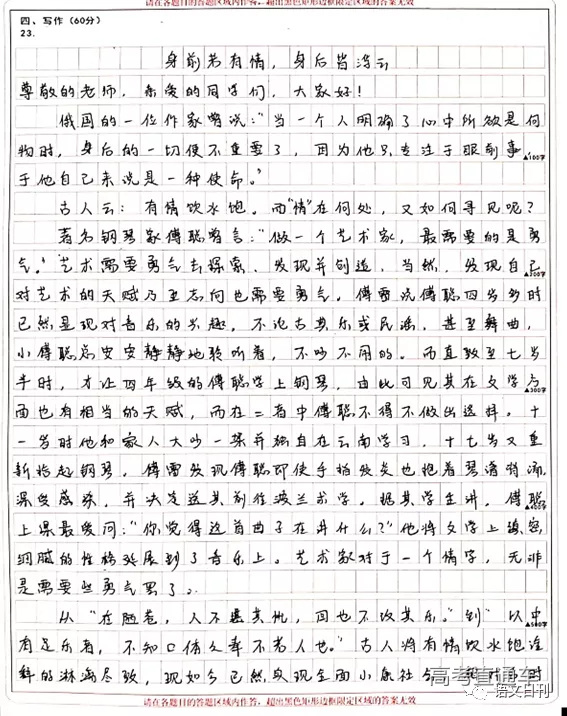 请在各题目的答题区域内作答,超出黑色矩形边框限定区域的答案无效
四、写作(60分)
23.
身前若有情,身后皆浮云
尊敬的老师,亲爱的同学们,大家好!
俄国的一位作家曾说:“当一个人明确了心中所欲是何
物时,身后的一切便不重要了,因为他只专注于眼前事,
▲100字
于他自己来说是一种使命。”
古人云:有情饮水饱。而“情”在何处,又如何寻见呢?
著名钢琴家傅聪曾言:“做一个艺术家,最需要的是勇
气。”艺术需要勇气去探索、发现并创造,当然,发现自己
▲200字
对艺术的天赋乃至志向也需要勇气。傅雷说傅聪四岁多时
已然显现对音乐的兴趣,不论古典乐或民谣,甚至舞曲,
小傅聪总安安静静地聆听着,不吵不闹的。而直教至七岁
半时,才让四年级的傅聪学上钢琴,由此可见其在文学方
▲300字
面也有相当的天赋,而在二者中傅聪不得不做出选择。十
一岁时他和家人大吵一架并独自在云南学习,十七岁又重
新拾起钢琴。傅雷发现傅聪即使手指发炎也抱着琴谱背诵,
深受感染,并决定送其前往波兰求学。据其学生讲,傅聪
▲400字
上课最爱问:“你觉得这首曲子在讲什么?”他将文学上缜密
细腻的性格发展到了音乐上。艺术家对于一个情字,无非
是需要些勇气罢了。
从“在陋巷,人不堪其忧,回也不改其乐。”到“以中
▲500字
有足乐者,不知口体之奉不若人也。”古人将有情饮水饱诠
释的淋漓尽致,现如今已然实现全面小康社会
高考直通车
语文日刊
请在各题目的答题区域内作答,超出黑色矩形边框限定区域的答案无效